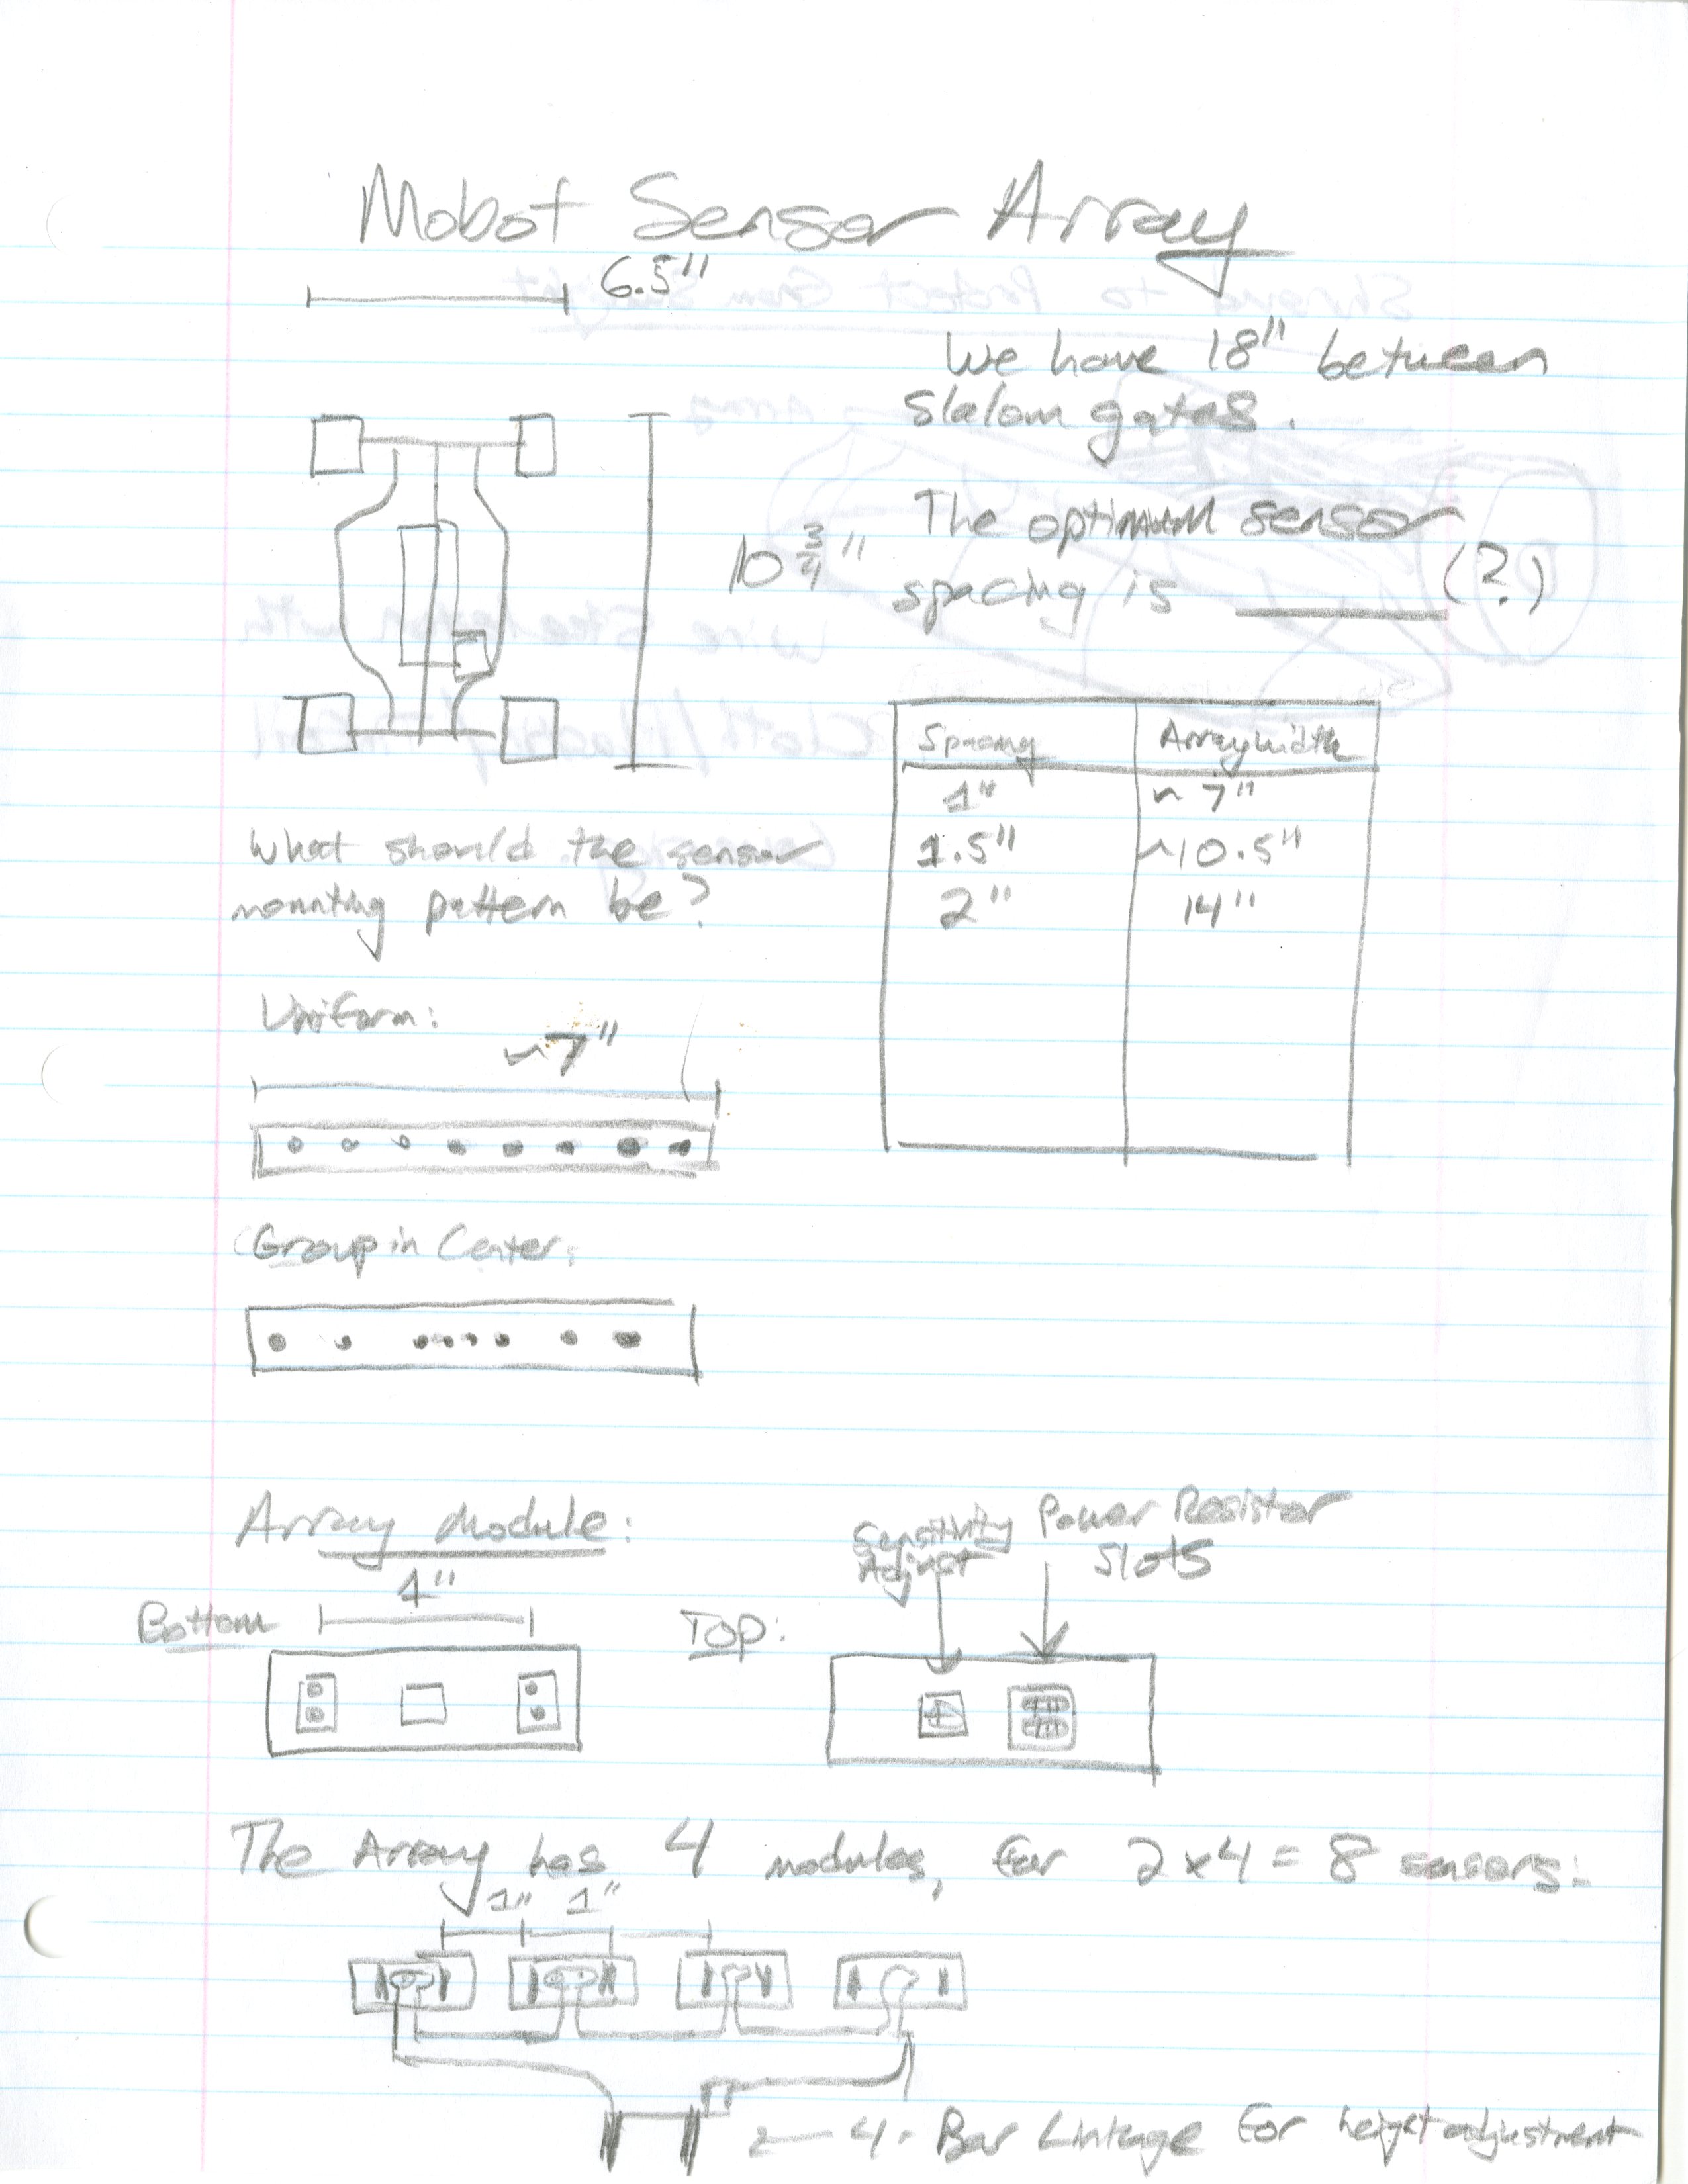 Mobot Sensor Array
6.5"
We have 18" between
slalom gates.
10 3/4"
The optimum sensor
spacing is ______ (?)
Spacing Array Width
1" ~ 7"
1.5" ~10.5"
2" 14"
What should the sensor
mounting pattern be?
Uniform:
~7"
Group in Center:
Array Module:
1"
Bottom
Sensitivity
Adjust
Power Resistor
Slots
Top:
The Array has 4 modules, for 2x4 = 8 sensors:
1" 1"
4-Bar Linkage for height adjustment
Shroud to Protect from Sunlight